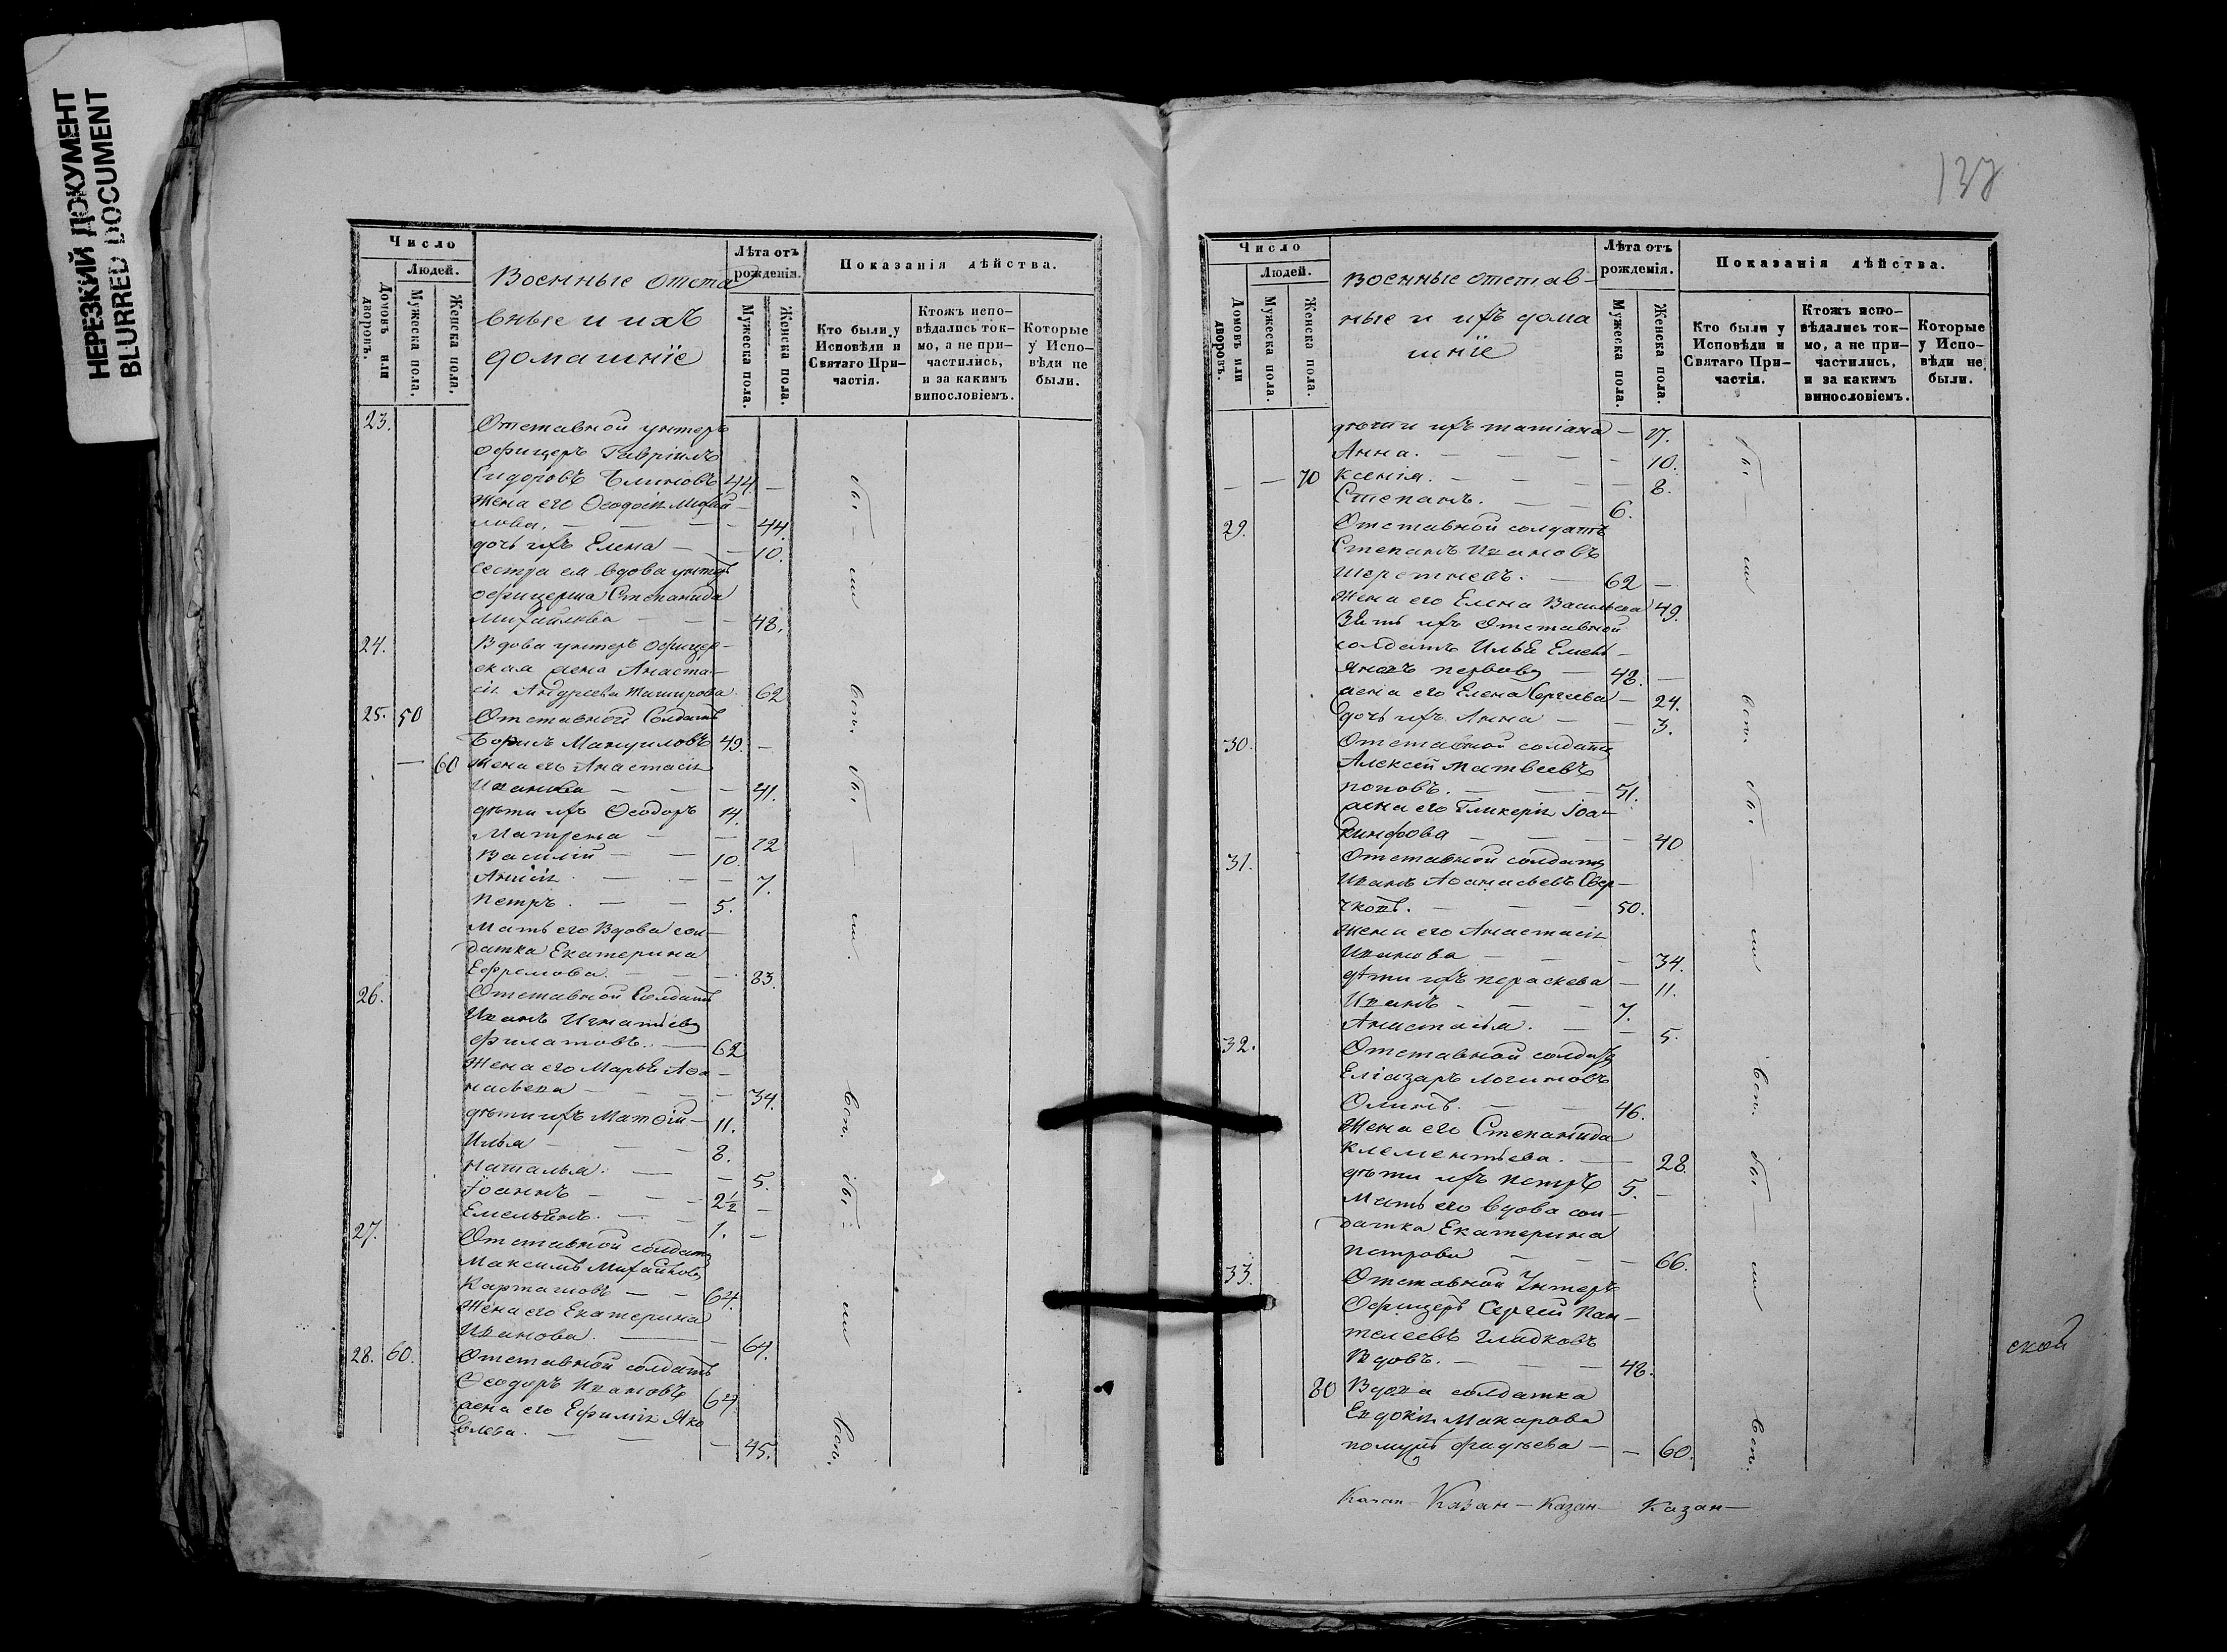 НЕРЕЗКИЙ ДОКУМЕНТ
BLURRED DOCUMENT
Число
Людей.
Домовъ или дворовъ.
Мужеска пола.
Женска пола.
Военные отста
вные и ихъ
домашніе
Лѣта отъ рожденія.
Мужеска пола.
Женска пола.
Показанія дѣйства.
Кто были у Исповѣди и Святаго Причастія.
Ктожъ исповѣдались токмо, а не причастились, и за какимъ винословіемъ.
Которые у Исповѣди не были.
23. Отставной унтеръ
офицеръ Гавріилъ
Сидоровъ Блиновъ 44 —
жена его Ѳеодосія Михай
лова. — — — 44.
дочь ихъ Елена — — 10.
сестра ея вдова унтеръ
офицерша Степанида
Михайлова — — 48.
24. Вдова унтеръ офицер-
ская жена Анаста-
сія Андреева 62
25. 50 Отставной Солдатъ
Борисъ Мануиловъ 49. —
— 60 жена его Анастасія
Иванова — — — 41.
дѣти ихъ Ѳеодоръ 14.
Матрена — — 12
Василій — — 10.
— — — 7.
Петръ. — — 5.
Мать его Вдова сол-
датка Екатерина
Ефремова. — — — 83.
26. Отставной Солдатъ
Иванъ Игнатьевъ
Филатовъ. — 62
Жена его Марья Аѳа-
насьева — — — 34.
дѣти ихъ Матѳій — 11.
Илья — — — 8.
Наталья. — — 5.
Іоаннъ — — — 2½ —
Емельянъ. — — 1. —
27. Отставной солдатъ
Максимъ Михайловъ
Карташовъ — — 64.
Жена его Екатерина
Иванова. — — 64.
28. 60. Отставной солдатъ
Ѳеодоръ Ивановъ 64
жена его Ефимія Яко
влева. — — — 45.
бы — ли
всп.
бы — ли.
всп.
бы — ли
всп.
137
Число
Людей.
Домовъ или дворовъ.
Мужеска пола.
Женска пола.
военные отстав-
ные и ихъ дома
шніе
Лѣта отъ рожденія.
Мужеска пола.
Женска пола.
Показанія дѣйства.
Кто были у Исповѣди и Святаго Причастія.
Ктожъ исповѣдались токмо, а не причастились, и за какимъ винословіемъ.
Которые у Исповѣди не были.
дѣти ихъ татіана — 17.
Анна. — — — — 10.
— — 70 Ксенія. — — — — 8.
Степанъ. — — 6.
29. Отставной солдатъ
Степанъ Ивановъ
Шерстневъ. — 62 —
Жена его Елена Васильева 49.
Зять ихъ Отставной
солдатъ Илья Емель-
яновъ первовъ — 48. —
жена его Елена Сергеева — 24.
дочь ихъ Анна — — 3.
30. Отставной солдатъ
Алексей Матвеевъ
поповъ. — — — 51.
жена его Гликерія Іоа-
кинфова — — — — 40
31. Отставной солдатъ
Иванъ Аѳанасьевъ Свер-
чковъ. — — — 50.
Жена его Анастасія
Иванова — — — 34.
дѣти ихъ параскева — 11.
Иванъ — — — 7.
Анастасья. — — 5.
32. Отставной солдатъ
Еліазаръ Логиновъ
— — 46.
Жена его Степанида
клементьева. — — 28
дѣти ихъ петръ 5. —
Мать его вдова сол-
датка Екатерина
петрова — — 66.
33. Отставной Унтеръ
Офицеръ Сергей Пан-
телеевъ Гладковъ
Вдовъ. — — — 48.
80 Вдова солдатка
Евдокія Макарова
— — 60.
бы — ли
всп.
бы — ли
всп.
бы — ли
всп.
ской
Казан Казан — Казан Казан —